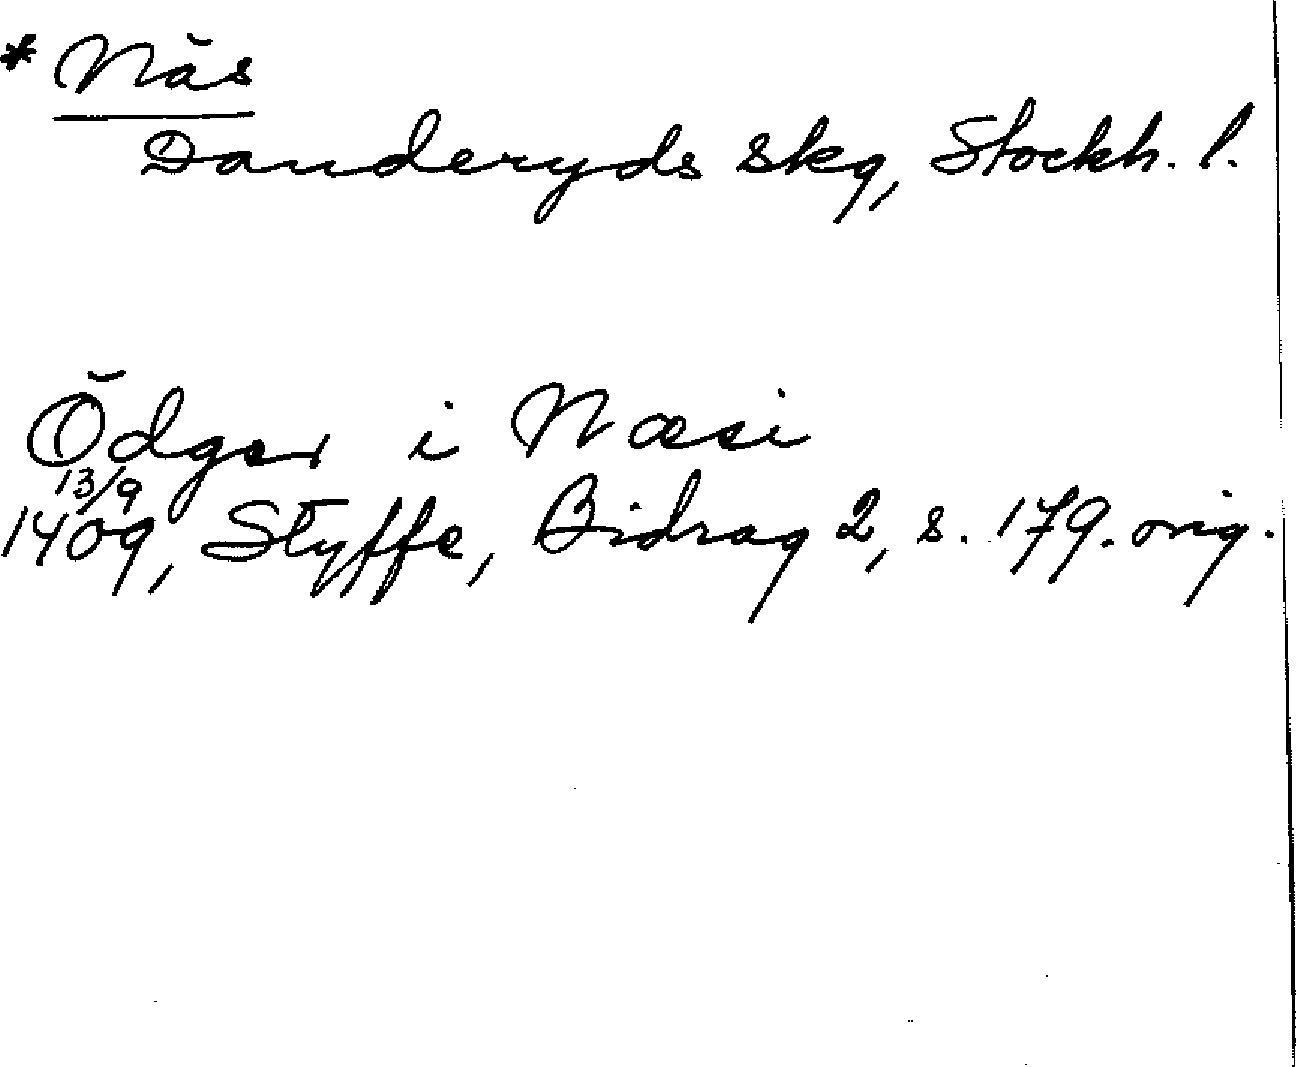 * Näs
Danderyds skg, Stockh. l.
Ödger i Næsi
13/9
1409, Styffe, Bidrag 2, s. 179. orig.